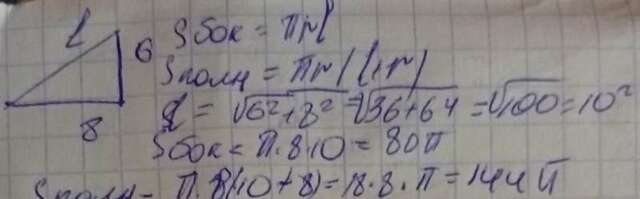 l
6
8
Sбок = πrl
Sполн = πr(l+r)
l = √6²+8² = √36+64 = √100 = 10²
Sбок = π·8·10 = 80π
Sполн = π·8(10+8) = 18·8·π = 144π